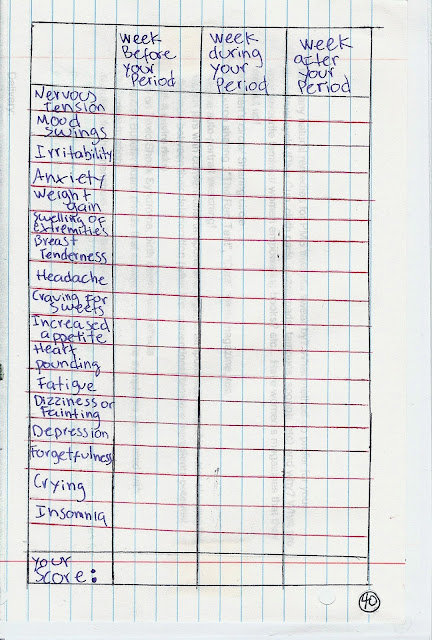 Week Before your Period
Week during your Period
Week after your Period
Nervous Tension
Mood swings
Irritability
Anxiety
Weight gain
Swelling of extremities
Breast Tenderness
Headache
Craving for sweets
Increased appetite
Heart pounding
Fatigue
Dizziness or Fainting
Depression
Forgetfulness
Crying
Insomnia
your score:
40